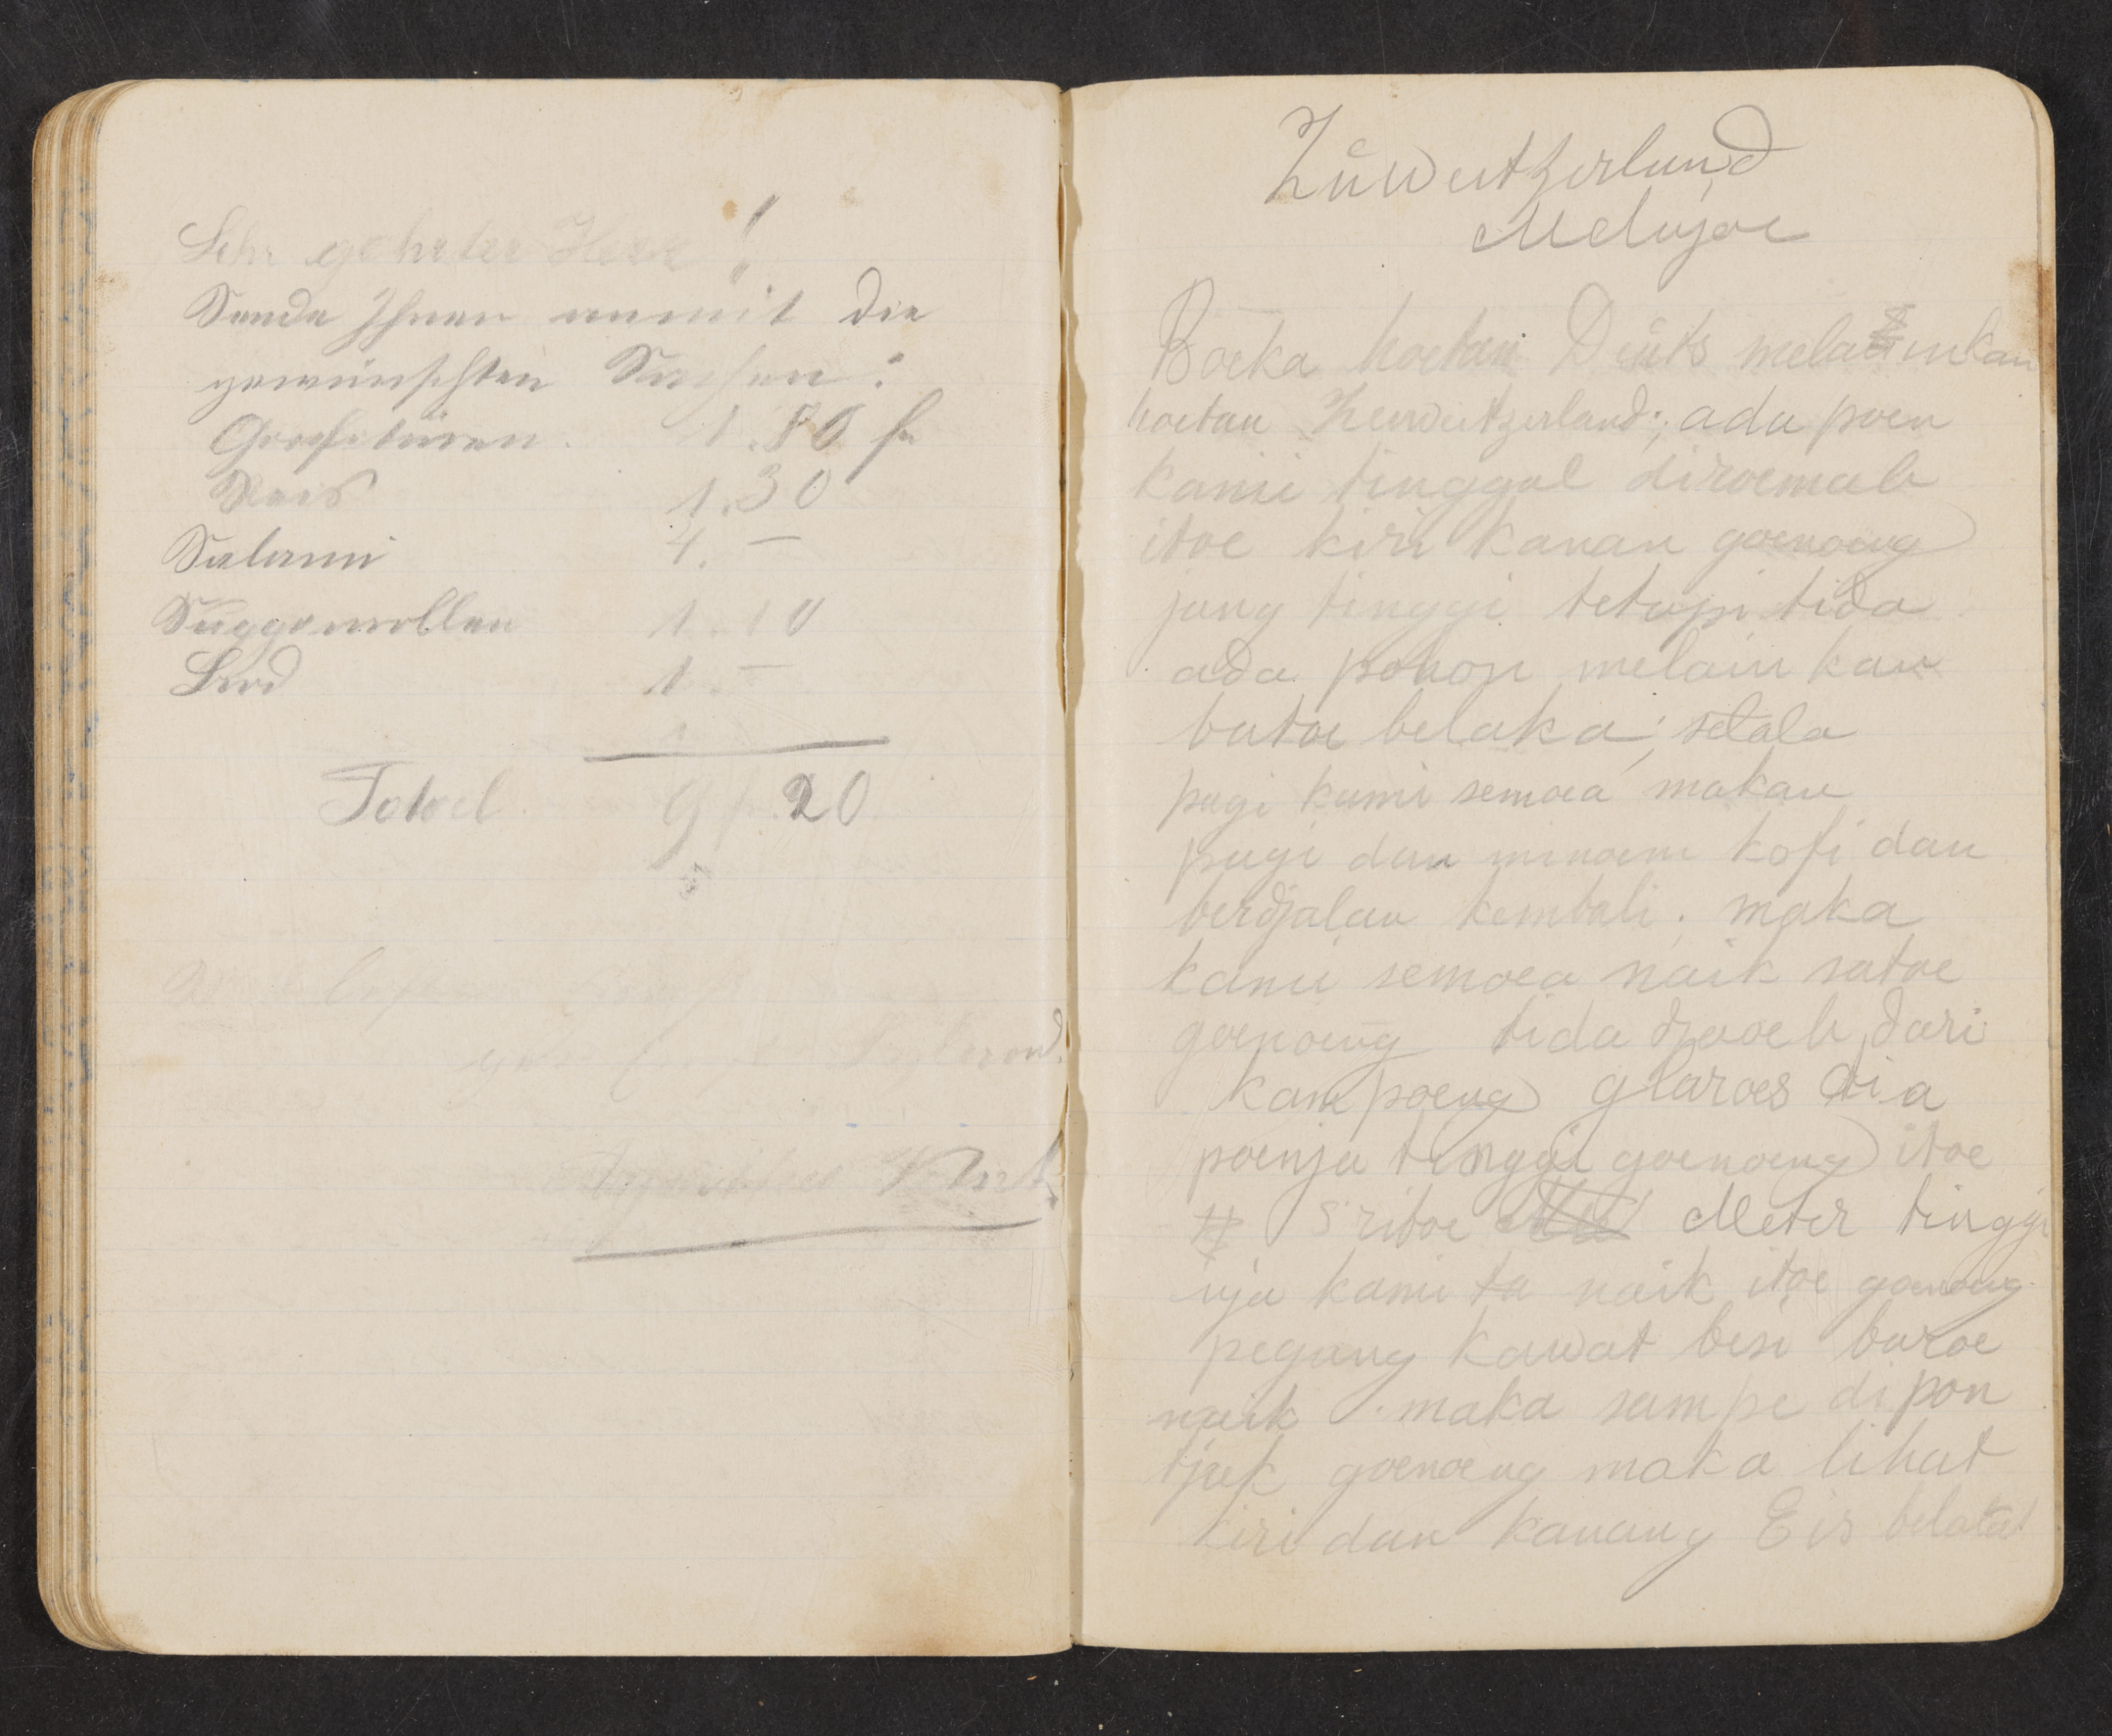 Sehr gehrter Herr!
Sende Ihnen anmit die
gewünschten Sachen:
Confitüren. 1.80 fr
Reis 1.30
Salami 4. –
Suggowollen 1.10
Brod 1. –
Total 9f.20
Zůweitzerland
Melajoe
Boeka hoetan Důits melainkan
hoetan Zeuweitzerland; ada poen
kami tinggal diroemah
itoe kiri kanan goenoeng
jang tinggi tetapi tida
ada pohon melain kan
batoe belaka; setala
pagi kami semoea makan
pagi dan minoem kofi dan
berdjalan kembali. maka
kami semoea naik satoe
goenoeng tida djaoeh dari
kampoeng glaroes dia
poenja tinggi goenoeng itoe
5 riboe Meter tinggi
nja kami ta naik itoe goenoeng
pegang kawat besi baroe
naik. maka sampe dipon
tjak goenoeng maka lihat
kiri dan kanang Eis